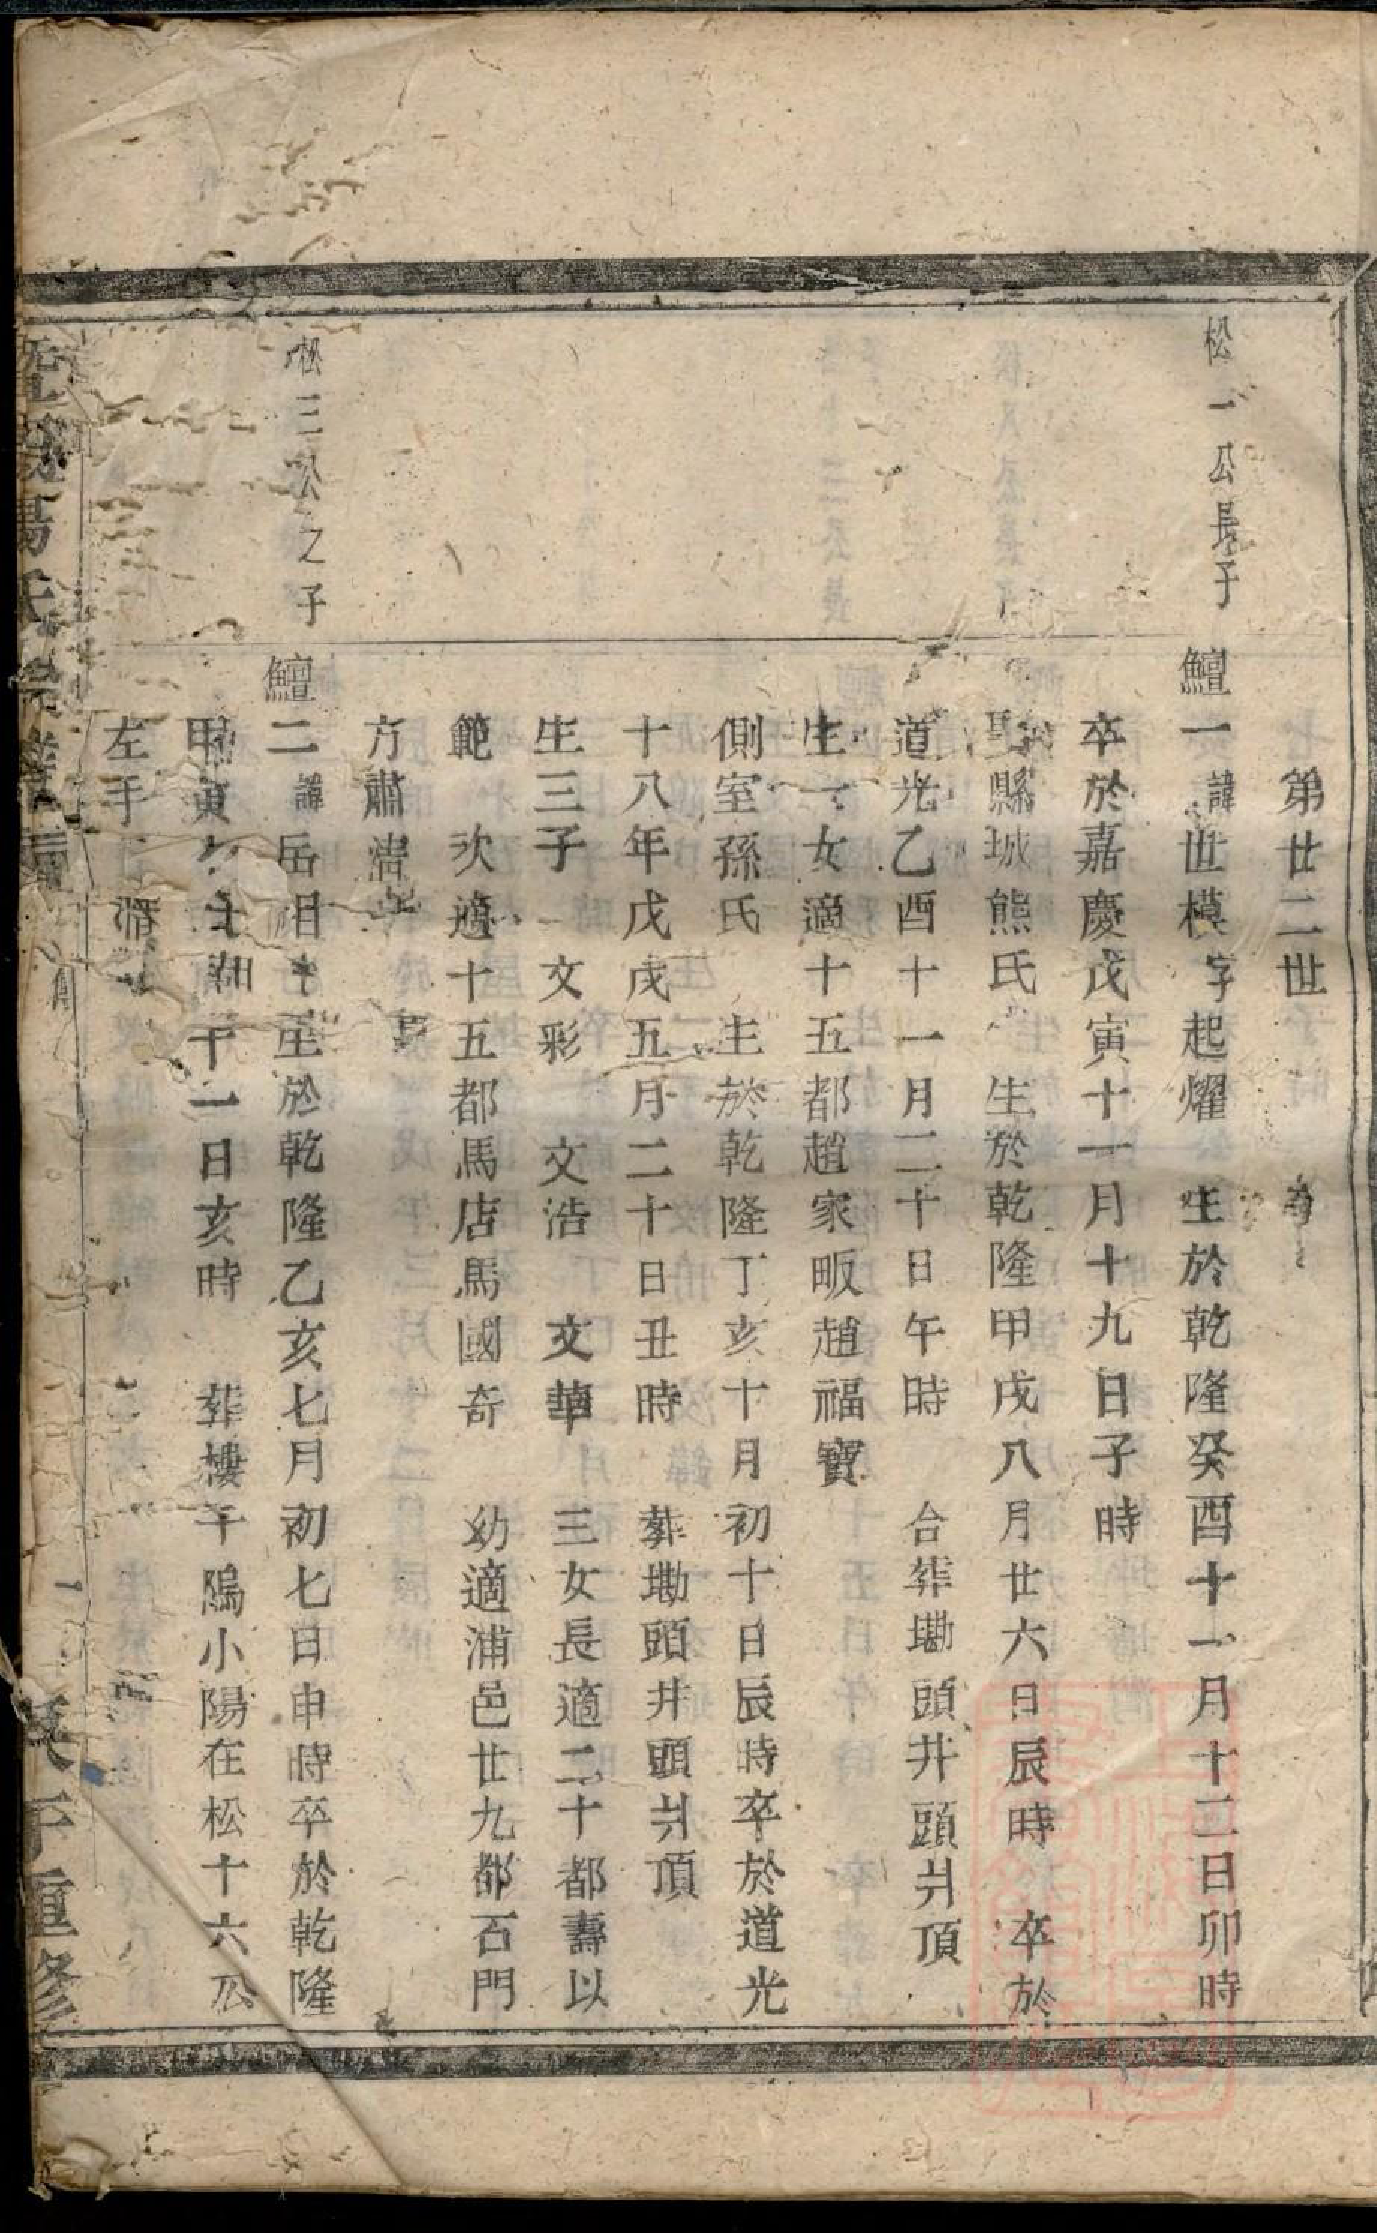 第廿二世
松一公長子
鱣一諱世模字起燿 生於乾隆癸酉十一月十二日卯時
卒於嘉慶戊寅十一月十九日子時
娶縣城熊氏 生於乾隆甲戌八月廿六日辰時 卒於
道光乙酉十一月二十日午時 合葬墈頭井頭爿頂
生一女適十五都趙家畈趙福寶
側室孫氏 生於乾隆丁亥十月初十日辰時卒於道光
十八年戊戌五月二十日丑時 葬墈頭井頭爿頂
生三子 文彩 文浩 文華 三女長適二十都壽以
範 次適十五都馬店馬國奇 幼適浦邑廿九都石門
方肅
松三公之子
鱣二諱岳 生於乾隆乙亥七月初七日申時卒於乾隆
甲寅 十一日亥時 葬樓干隖小陽在松十六公
左手
氏 重修